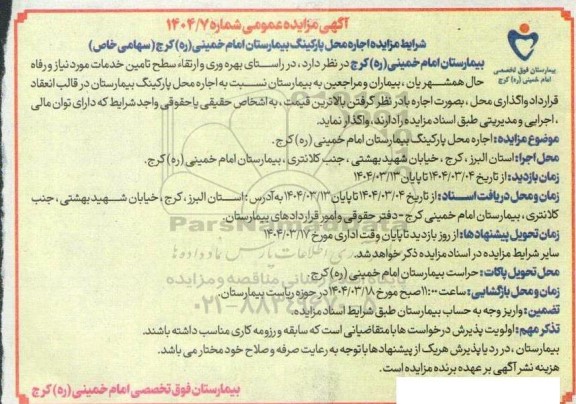 آگهی مزایده عمومی شماره ۱۴۰۴/۷
شرایط مزایده اجاره محل پارکینگ بیمارستان امام خمینی (ره) کرج (سهامی خاص)
بیمارستان فوق تخصصی
امام خمینی (ره) کرج
بیمارستان امام خمینی (ره) کرج در نظر دارد، در راستای بهره وری و ارتقاء سطح تامین خدمات مورد نیاز و رفاه
حال همشهریان، بیماران و مراجعین به بیمارستان نسبت به اجاره محل پارکینگ بیمارستان در قالب انعقاد
قرارداد واگذاری محل، بصورت اجاره با در نظر گرفتن بالاترین قیمت، به اشخاص حقیقی یا حقوقی واجد شرایط که دارای توان مالی
، اجرایی و مدیریتی طبق اسناد مزایده را دارند، واگذار نماید.
موضوع مزایده: اجاره محل پارکینگ بیمارستان امام خمینی (ره) کرج.
محل اجرا: استان البرز، کرج، خیابان شهید بهشتی، جنب کلانتری، بیمارستان امام خمینی (ره) کرج.
زمان بازدید: از تاریخ ۱۴۰۴/۰۳/۰۴ تا پایان ۱۴۰۴/۰۳/۱۳
زمان و محل دریافت اسناد: از تاریخ ۱۴۰۴/۰۳/۰۴ تا پایان ۱۴۰۴/۰۳/۱۳ به آدرس: استان البرز، کرج، خیابان شهید بهشتی، جنب
کلانتری، بیمارستان امام خمینی کرج - دفتر حقوقی و امور قراردادهای بیمارستان.
زمان تحویل پیشنهادها: از روز بازدید تا پایان وقت اداری مورخ ۱۴۰۴/۰۳/۱۷
سایر شرایط مزایده در اسناد مزایده ذکر خواهد شد.
محل تحویل پاکات: حراست بیمارستان امام خمینی (ره) کرج.
زمان و محل بازگشایی: ساعت ۱۱:۰۰ صبح مورخ ۱۴۰۴/۰۳/۱۸ در حوزه ریاست بیمارستان.
تضمین: واریز وجه به حساب بیمارستان طبق شرایط اسناد مزایده.
تذکر مهم: اولویت پذیرش درخواست ها با متقاضیانی است که سابقه و رزومه کاری مناسب داشته باشند.
بیمارستان، در رد یا پذیرش هر یک از پیشنهادها با توجه به رعایت صرفه و صلاح خود مختار می باشد.
هزینه نشر آگهی بر عهده برنده مزایده است.
بیمارستان فوق تخصصی امام خمینی (ره) کرج